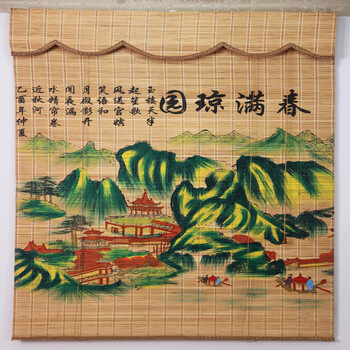 春满琼园
玉楼天半
起笙歌
风送宫嫔
笑语和
月殿影开
闻夜漏
水精帘卷
近秋河
乙酉年仲夏